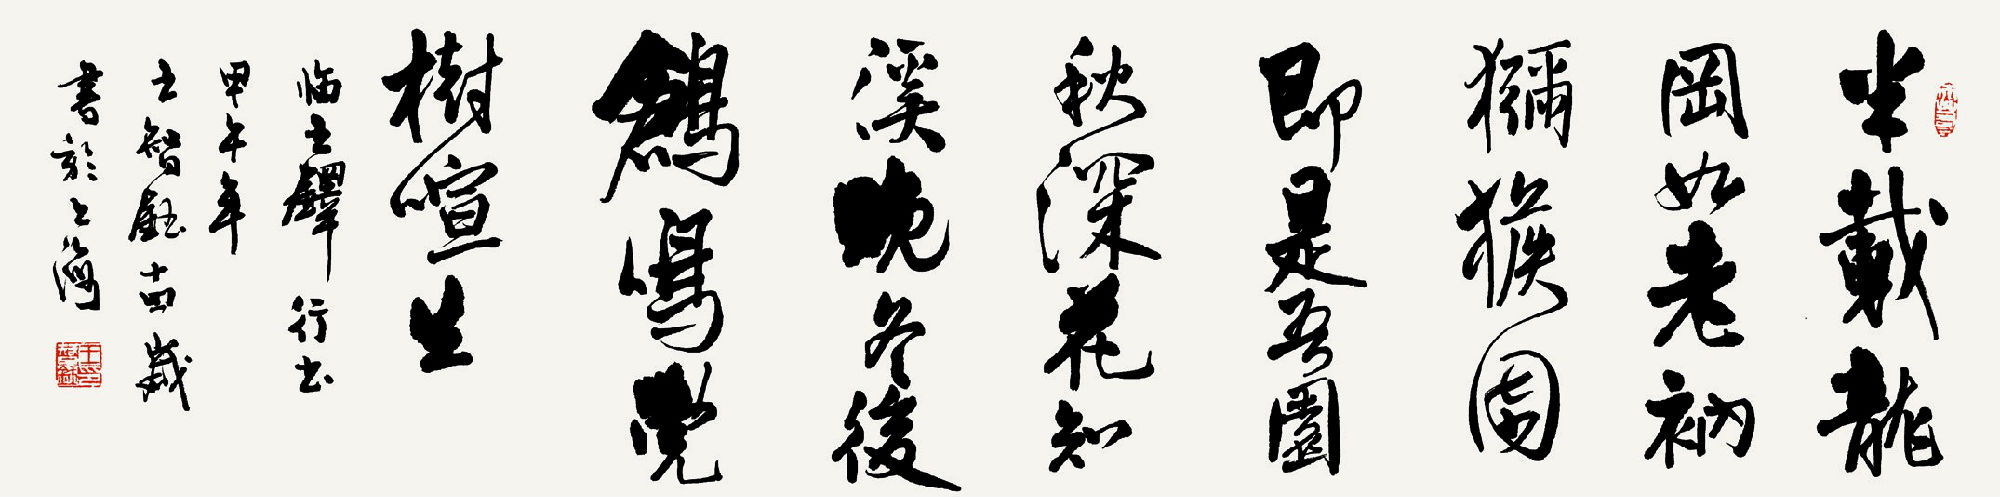 半載龍
岡如老衲
獼猴園
即是吾園
秋深花知
溪晚冬後
鶬鳴覺
樹喧生
临王鐸行书
甲午年
王智鈺十四歲
書於上海